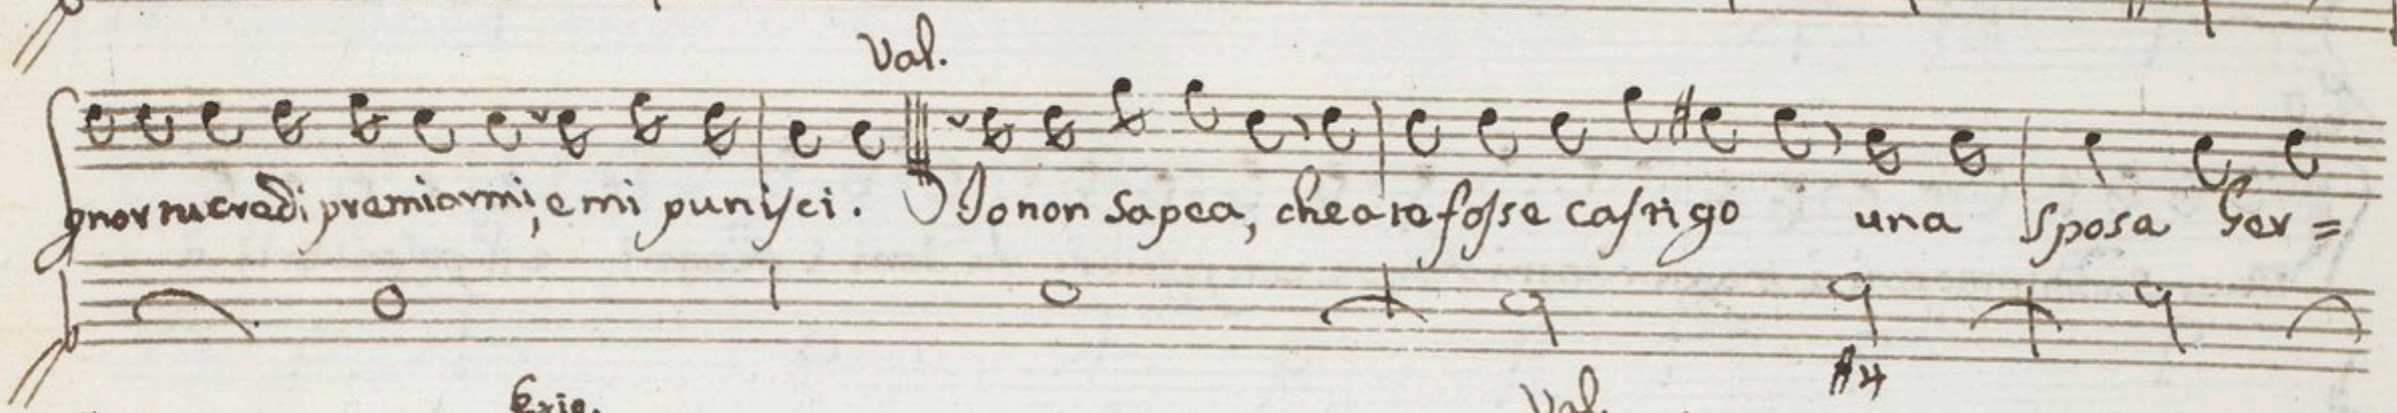 Val.
gnor tu credi premiarmi, e mi punisci. Io non sapea, che a te fosse castigo una sposa Ger=
#4
Val.